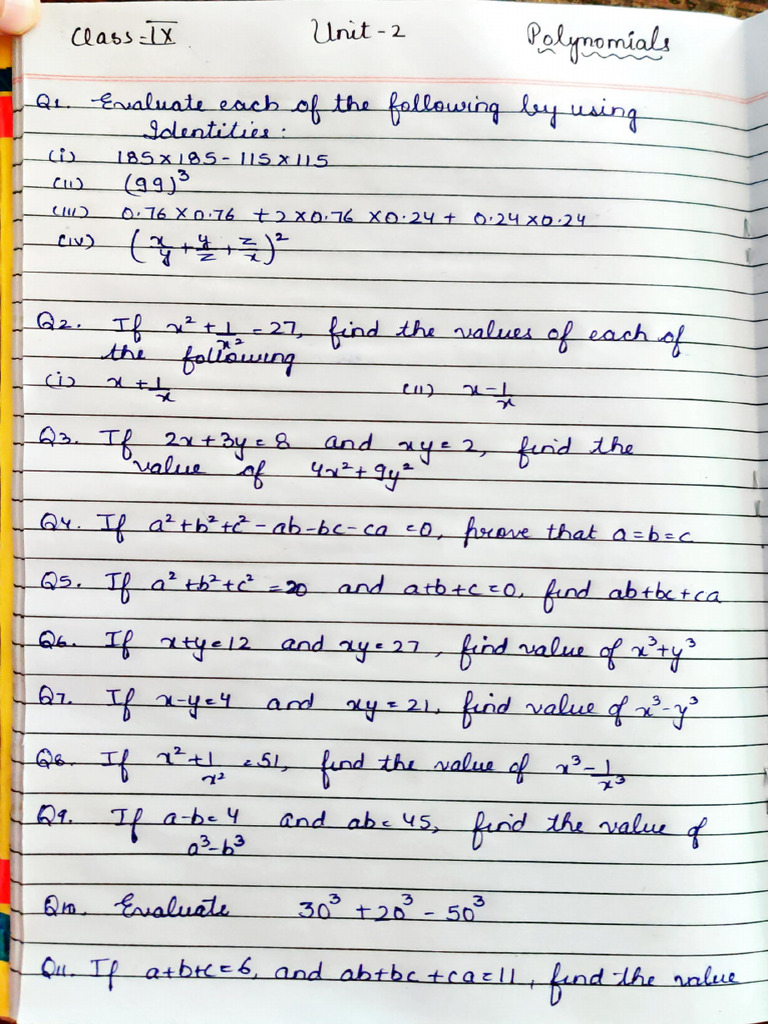 Class-IX Unit-2 Polynomials
Q1. Evaluate each of the following by using
Identities:
(i) 185×185-115×115
(ii) (99)³
(iii) 0.76×0.76 + 2×0.76×0.24 + 0.24×0.24
(iv) (x/y + y/z + z/x)²
Q2. If x² + 1/x² = 27, find the values of each of
the following
(i) x + 1/x (ii) x - 1/x
Q3. If 2x+3y=8 and xy=2, find the
value of 4x²+9y²
Q4. If a²+b²+c²-ab-bc-ca=0, prove that a=b=c
Q5. If a²+b²+c²=20 and a+b+c=0, find ab+bc+ca
Q6. If x+y=12 and xy=27, find value of x³+y³
Q7. If x-y=4 and xy=21, find value of x³-y³
Q8. If x² + 1/x² = 51, find the value of x³ - 1/x³
Q9. If a-b=4 and ab=45, find the value of
a³-b³
Q10. Evaluate 30³+20³-50³
Q11. If a+b+c=6, and ab+bc+ca=11, find the value